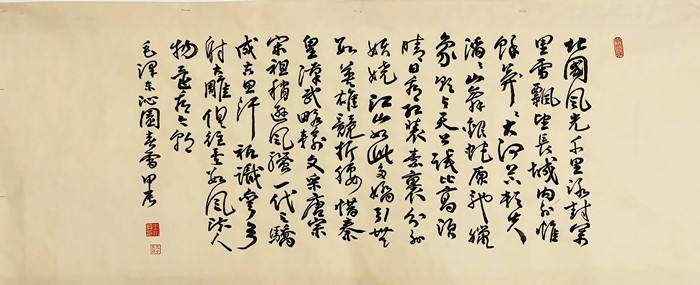 北國風光千里冰封萬
里雪飄望長城內外惟
餘莽〻大河上下頓失
滔〻山舞銀蛇原馳蠟
象欲與天公試比高須
晴日看紅裝素裹分外
妖嬈江山如此多嬌引無
數英雄競折腰惜秦
皇漢武略輸文采唐宗
宋祖稍遜風騷一代天驕
成吉思汗祇識彎弓
射大雕俱往矣數風流人
物還看今朝
毛澤東沁園春雪